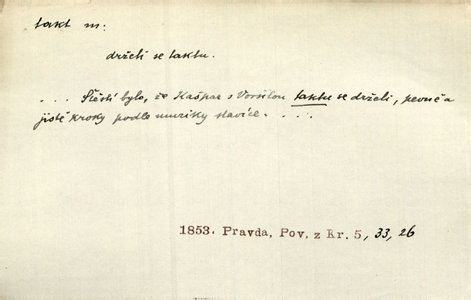 takt m.
držeti se taktu.
. . . Štěstí bylo, že Kašpar s Voršilou taktu se drželi, pevně a
jisté kroky podle muziky stavíce. . . .
1853. Pravda, Pov. z Kr. 5, 33, 26